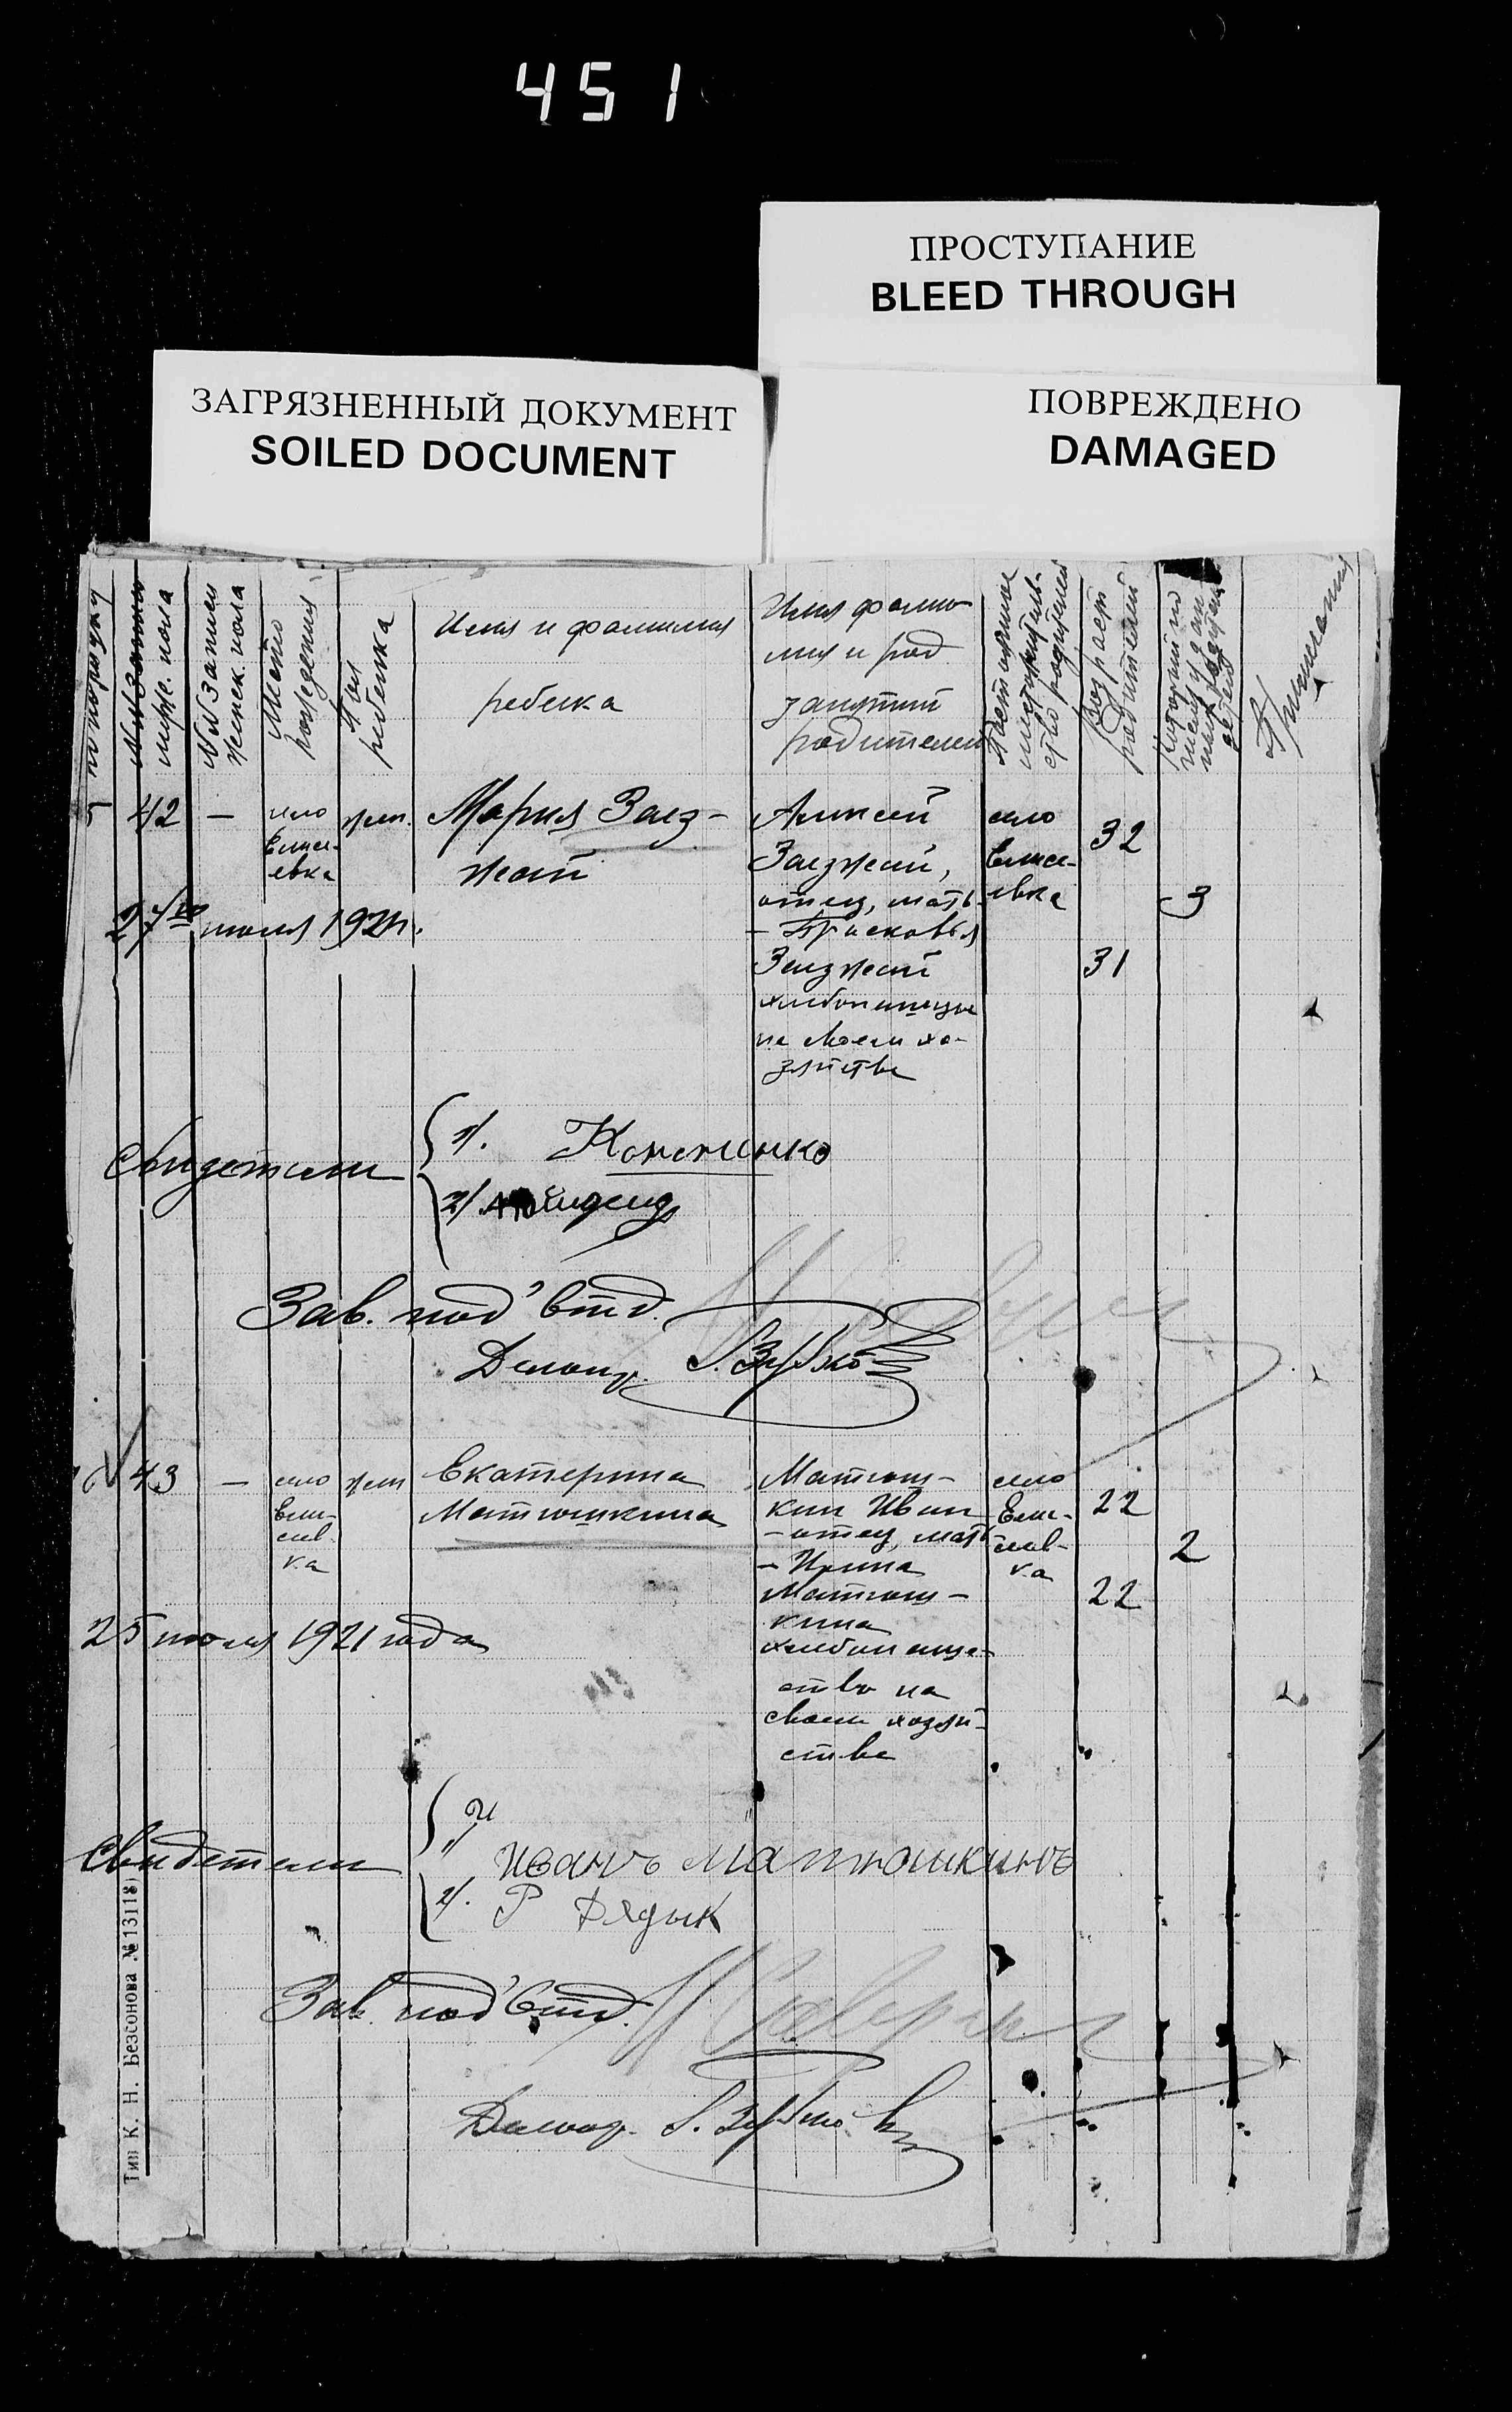 451
ПРОСТУПАНИЕ
BLEED THROUGH
ЗАГРЯЗНЕННЫЙ ДОКУМЕНТ
SOILED DOCUMENT
ПОВРЕЖДЕНО
DAMAGED
по порядку
№№ записи
мужс. пола
№№ записи
женск. пола
Место
рождения
Пол
ребенка
Имя и фамилия
ребенка
Имя фами-
лия и род
занятий
родителей
Постоянное
жительство родителей
Возраст
родителей
Который по
Примечания
5 42 — село жен. Мария Заез-
Елисе-
евка
жай
Алексей
Заезжай,
отец, мать
- Прасковья
Заезжай
хлебопашцы
на своем хо-
зяйстве
село
Елисе-
евка
32
31
3
27го июля 1921 г.
Свидетели
1/. Кононенко
2/.
Зав. под'отд.
Делопр.
43 — село жен Екатерина
Елис-
еев-
ка
Матюшкина
Матюш-
кин Иван
- отец, мать
- Ирина
Матюш-
кина
хлебопаше-
ство на
своем хозяй-
стве
село
Елис-
еев-
ка
22
22
2
25 июля 1921 года
Свидетели
1/
Иванъ Матюшкинъ
2/. Р Дядык
Зав. под'отд.
Делопр.
Тип К. Н. Безсонова №13118)